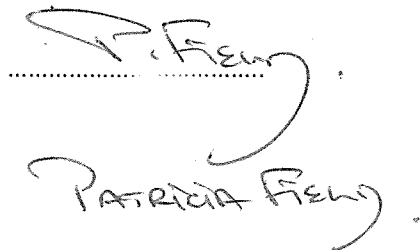 P. Field
PATRICIA FIELD